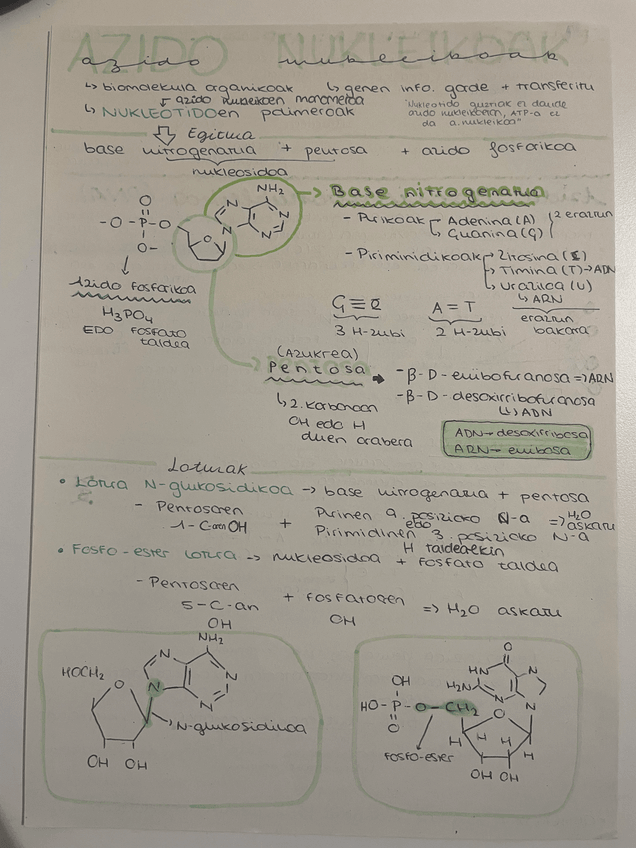 AZIDO NUKLEIKOAK
azido nukleikoak
↳ biomolekula organikoak ↳ genen info. gorde + transferitu
↳ azido nukleikoen monomeroa
↳ NUKLEOTIDOen polimeroak
"Nukleotido guztiak ez daude
azido nukleikoetan, ATP-a ez
da a.nukleikoa"
Egitura
base nitrogenatua + pentosa + azido fosforikoa
nukleosidoa
NH₂
N
N
N
N
O
-O-P-O
O-
O
→ Base nitrogenatua
- Purikoak
Adenina (A)
Guanina (G)
2 eraztun
- Pirimidinikoak
Zitosina (C)
Timina (T) → ADN
Uraziloa (U)
↳ ARN
eraztun
bakarra
G≡C
3 H-zubi
A=T
2 H-zubi
Azido fosforikoa
H₃PO₄
EDO FOSFATO
taldea
(Azukrea)
Pentosa
↳ 2. karbonoan
OH edo H
duen arabera
➡ -β-D-erribofuranosa => ARN
-β-D-desoxirribofuranosa
↳ ADN
ADN → desoxirribosa
ARN → erribosa
Loturak
• Lotura N-glukosidikoa → base nitrogenatua + pentosa
- Pentosaren
1-C-aren OH
+
Purinen 9. posizioko N-a
edo
Pirimidinen 3. posizioko N-a
H taldearekin
=> H₂O
askatu
• Fosfo-ester lotura → nukleosidoa + fosfato taldea
- Pentosaren
5-C-an
OH
+ fosfatoaren
OH
=> H₂O askatu
NH₂
N
N
N
N
HOCH₂
O
OH OH
→ N-glukosidikoa
O
HN
N
H₂N
N
N
OH
HO-P-O-CH₂
O
O
H H H H
OH OH
fosfo-ester